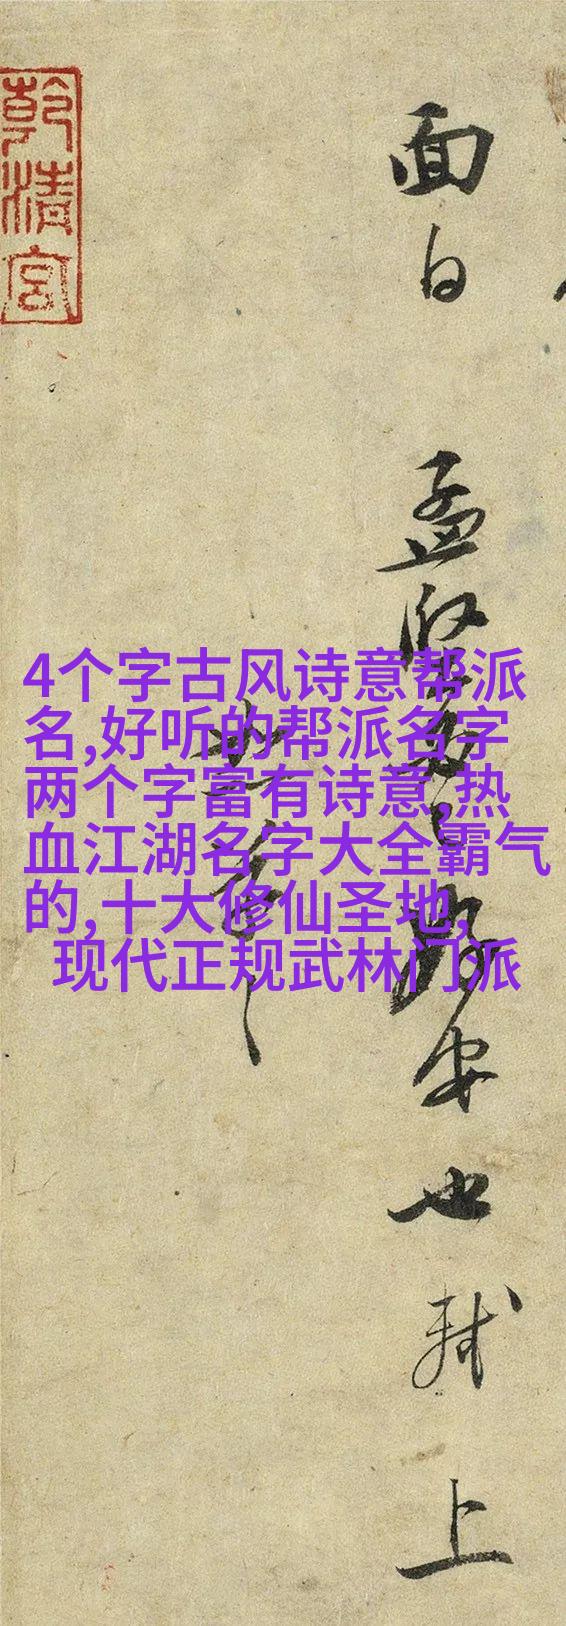 乾清宮
面白 孟堅 安也 軾 上
4个字古风诗意帮派
名,好听的帮派名字
两个字富有诗意,热
血江湖名字大全霸气
的,十大修仙圣地,
现代正规武林门派